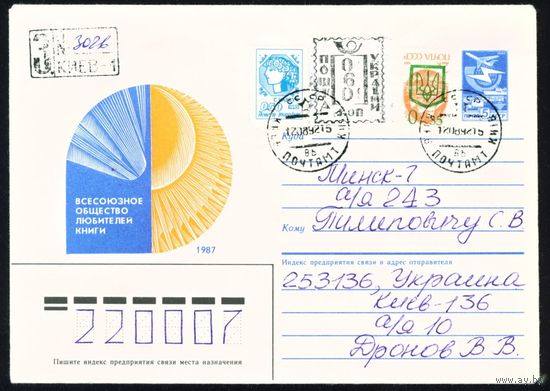 № 302б
КИЕВ-1
ПОШТА
УКРАЇНИ
0-60
КОП
ПОЧТА СССР
12089215
ПОЧТАМТ
12089215
ПОЧТАМТ
ВСЕСОЮЗНОЕ
ОБЩЕСТВО
ЛЮБИТЕЛЕЙ
КНИГИ
1987
Куда
Минск-7
а/я 243
Кому
Пилиповичу С.В
Индекс предприятия связи и адрес отправителя
253136, Украина
Киев-136
а/я 10
Дронов В.В.
220007
Пишите индекс предприятия связи места назначения
www.ay.by